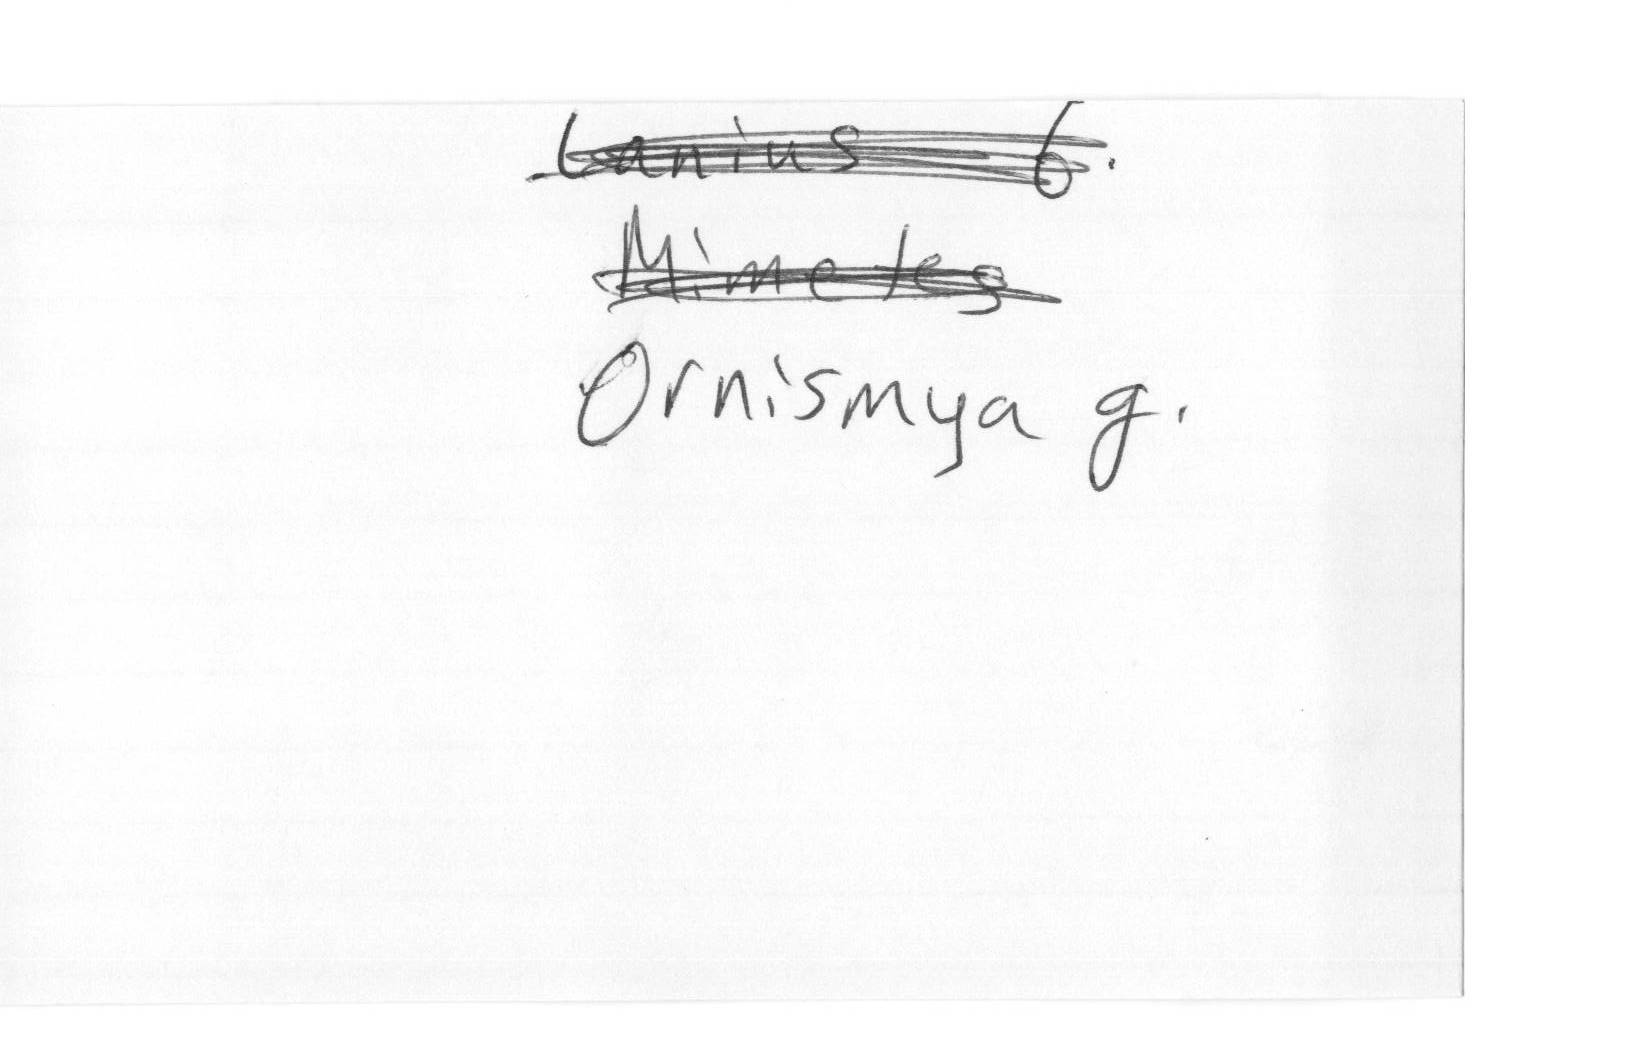 Lanius b.
Mimetes
Ornismya g.